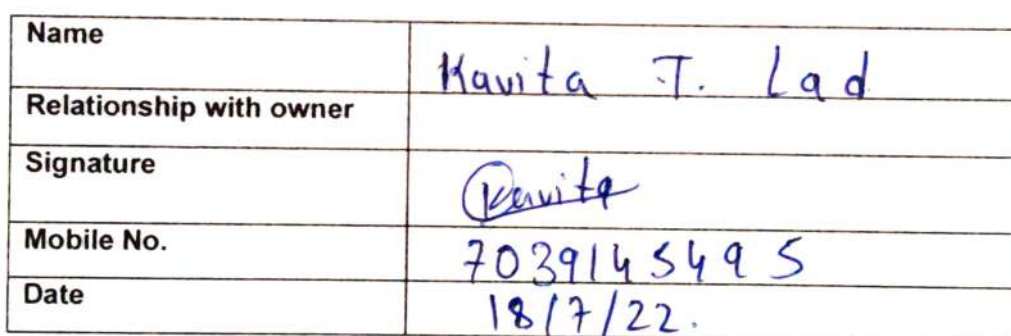 Name Kavita T. Lad
Relationship with owner
Signature Kavita
Mobile No. 7039145495
Date 18/7/22.